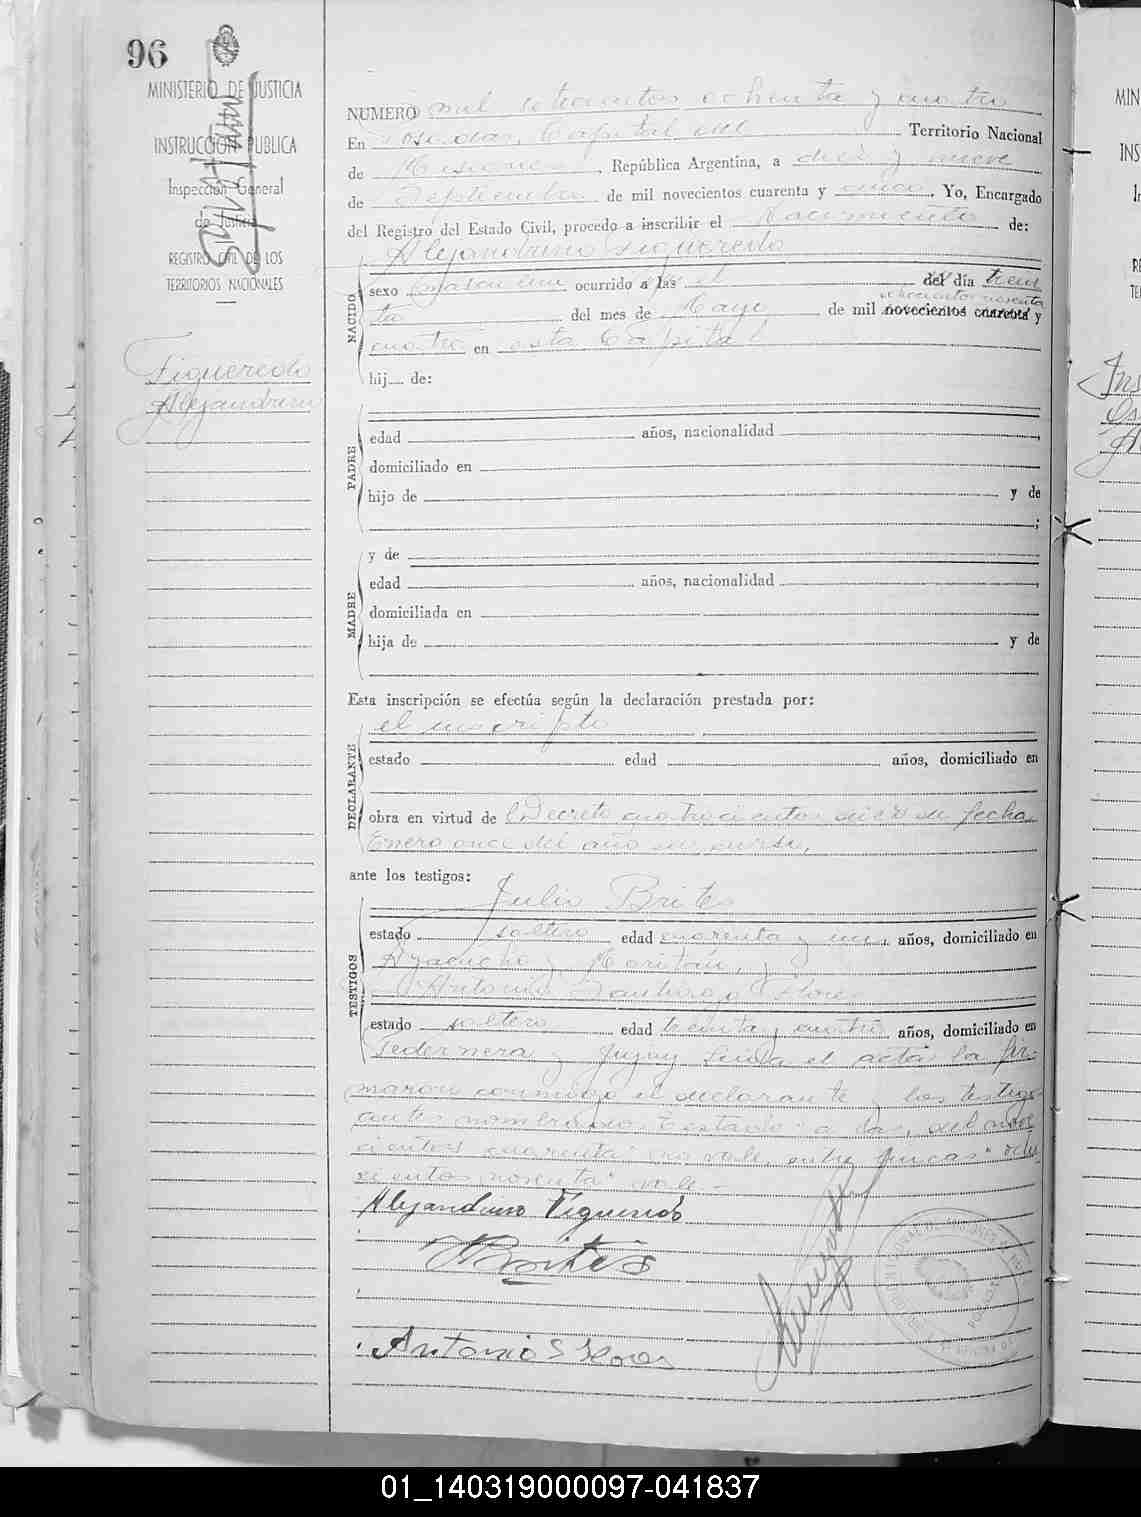 96
MINISTERIO DE JUSTICIA
INSTRUCCION PUBLICA
Inspección General
de Justicia
REGISTRO CIVIL DE LOS
TERRITORIOS NACIONALES
Figueredo
Alejandrino
NUMERO mil setecientos ochenta y cuatro
En Posadas, Capital del Territorio Nacional
de Misiones, República Argentina, a diez y nueve
de Septiembre de mil novecientos cuarenta y cinco. Yo, Encargado
del Registro del Estado Civil, procedo a inscribir el Nacimiento de:
Alejandrino Figueredo
NACIDO
sexo masculino ocurrido a las el del día trein
ta del mes de Mayo de mil novecientos cuarenta y
ochocientos noventa
cuatro en esta Capital
hij... de:
PADRE
edad años, nacionalidad
domiciliado en
hijo de y de
;
MADRE
y de
edad años, nacionalidad
domiciliada en
hija de y de
Esta inscripción se efectúa según la declaración prestada por:
DECLARANTE
el inscripto
estado edad años, domiciliado en
obra en virtud de Decreto cuatrocientos diez de fecha
Enero once del año en curso,
ante los testigos:
TESTIGOS
Julio Brites
estado soltero edad cuarenta y un años, domiciliado en
Ayacucho y
Antonio Santiago Flores
estado soltero edad treinta y cuatro años, domiciliado en
Pedernera y Jujuy Leída el acta la fir-
maron conmigo el declarante y los testigos
antes nombrados. Testado: a las, del nove
cientos cuarenta: no vale, entre líneas: ocho
cientos noventa: vale.-
Alejandrino Figueredo
JBrites
Antonio S Flores
01_140319000097-041837